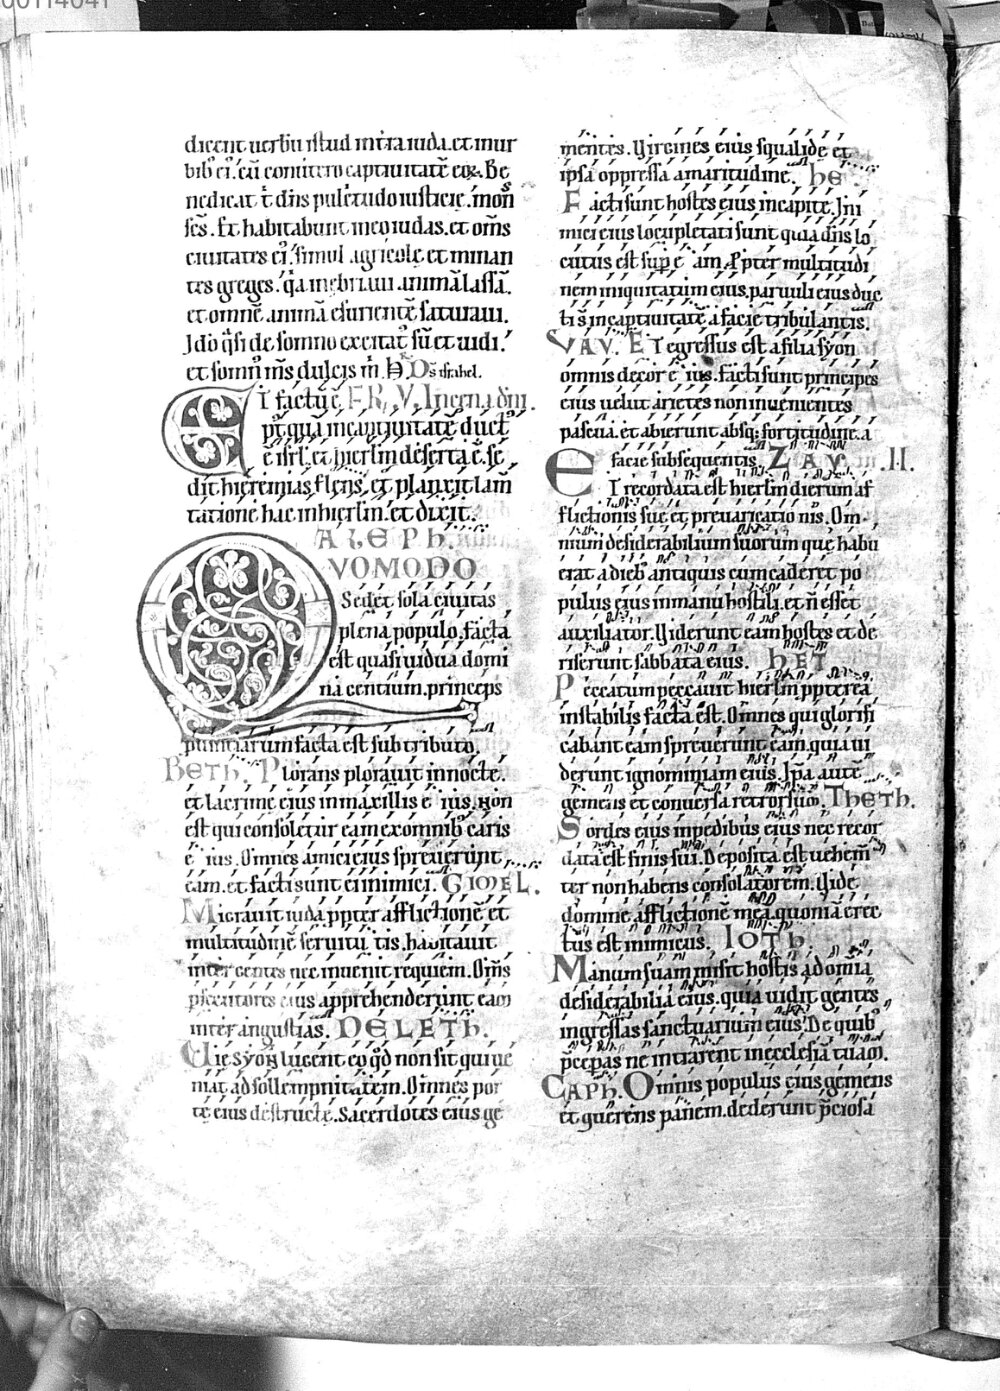 dicent uerbū istud in tra iuda. et in ur
bib; ei'. cū conuertero captiuitatē eoꝝ. Be
nedicat t̄ dn̄s pulc̄tudo iusticie. mons
sc̄s. Et habitabunt in eo iudas. et om̄s
ciuitates ei'. simul agricole et minan
tes greges. q̄a inebriaui animā lassā.
et omnē animā esurientē saturaui.
Ido q̄si de somno excitat' sū et uidi.
et somn' m̄s dulcis m̄. D̄s israhel.
ET factū ē
pt̄quā in captiuitatē duct'
ē isrl. et hierlm̄ deserta ē. se
dit hieremias flens. et planxit lam̄
tatione hac in hierlm̄. et dixit.
ALEPH.
QVOMODO
Sedet sola ciuitas
plena populo. facta
est quasi uidua domi
na gentium. princeps
prouinciarum facta est sub tributo.
BETH. Plorans plorauit in nocte.
et lacrime eius in maxillis e ius. Non
est qui consoletur eam ex omnib; caris
e ius. Omnes amici eius spreuerunt
eam. et facti sunt ei inimici. GIMEL.
Migrauit iuda ꝓpter afflictionē et
multitudinē seruitu tis. habitauit
inter gentes nec inuenit requiem. Om̄s
persecutores eius apprehenderunt eam
inter angustias. DELETH.
Uie syon lugent eo qd̄ non sit qui ue
niat ad sollempnitatem. Omnes por
te eius destructe. Sacerdotes eius ge
mentes. Uirgines eius squalide et
ipsa oppressa amaritudine. HE
Facti sunt hostes eius in capite. Ini
mici eius locupletati sunt quia dn̄s lo
cutus est sup e am. Ꝓpter multitudi
nem iniquitatum eius. paruuli eius duc
ti s̄ in captiuitatē a facie tribulantis.
VAV. ET egressus est a filia syon
omnis decor e ius. Facti sunt principes
eius uelut arietes non inuenientes
pascua. et abierunt absq; fortitudine a
facie subsequentis. ZAV. .II.
ET recordata est hierlm̄ dierum af
flictionis sue et preuaricatio nis. Om
nium desiderabilium suorum que habu
erat a dieb; antiquis cum caderet po
pulus eius in manu hostili. et n̄ esset
auxiliator. Uiderunt eam hostes et de
riserunt sabbata eius. HET
Peccatum peccauit hierlm̄ ꝓpterea
instabilis facta est. Omnes qui glorifi
cabant eam spreuerunt eam. quia ui
derunt ignominiam eius. Ipa autē
gemens et conuersa retrorsum. THETH.
Sordes eius in pedibus eius nec recor
data est finis sui. Deposita est uehem̄
ter non habens consolatorem. Uide
domine afflictionē mea. quoniā erec
tus est inimicus. IOTH.
Manum suam misit hostis ad omia
desiderabilia eius. quia uidit gentes
ingressas sanctuarium eius. De quib;
p̄ceperas ne intrarent in ecclesiā tuam.
CAPH. Omnis populus eius gemens
et querens panem. dederunt p̄ciosa